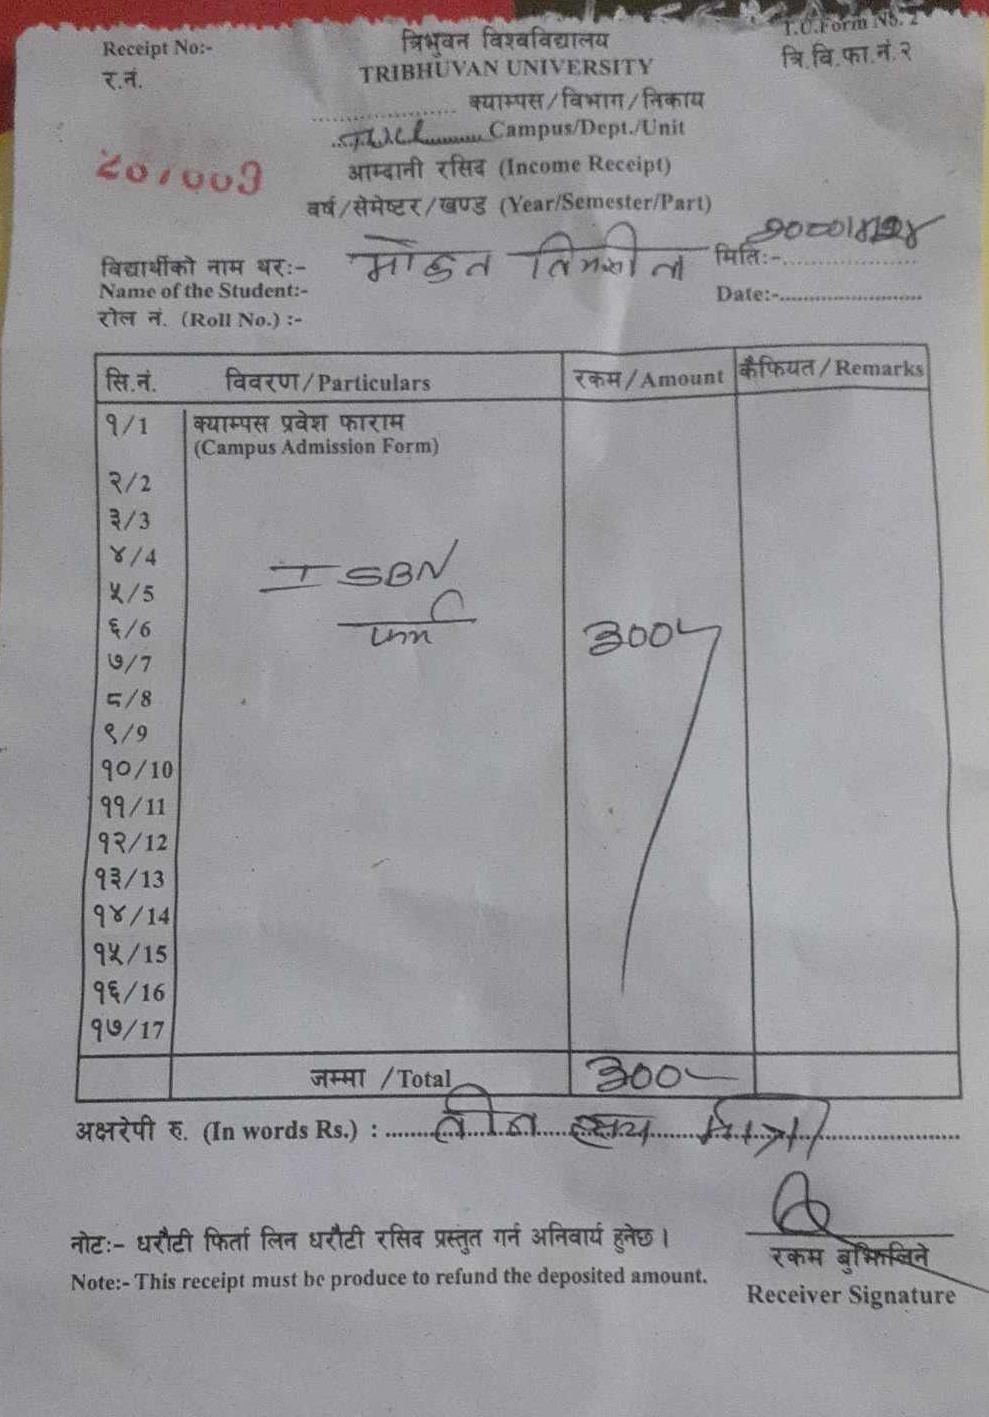 T.U.Form No. 2
Receipt No:-
त्रिभुवन विश्वविद्यालय
त्रि.वि.फा.नं.२
र.नं.
TRIBHUVAN UNIVERSITY
क्याम्पस/विभाग/निकाय
Campus/Dept./Unit
आम्दानी रसिद (Income Receipt)
वर्ष/सेमेष्टर/खण्ड (Year/Semester/Part)
विद्यार्थीको नाम थरः-
मितिः-
Name of the Student:-
Date:-
रोल नं. (Roll No.) :-
सि.नं. विवरण/Particulars रकम/Amount कैफियत/Remarks
१/1 क्याम्पस प्रवेश फाराम
(Campus Admission Form)
२/2
३/3
४/4
ISBN
५/5
६/6 फर्म 300
७/7
८/8
९/9
१०/10
११/11
१२/12
१३/13
१४/14
१५/15
१६/16
१७/17
जम्मा /Total 300
अक्षरेपी रु. (In words Rs.) : तीन सय मात्र
नोटः- धरौटी फिर्ता लिन धरौटी रसिद प्रस्तुत गर्न अनिवार्य हुनेछ ।
रकम बुझिलिने
Note:- This receipt must be produce to refund the deposited amount.
Receiver Signature